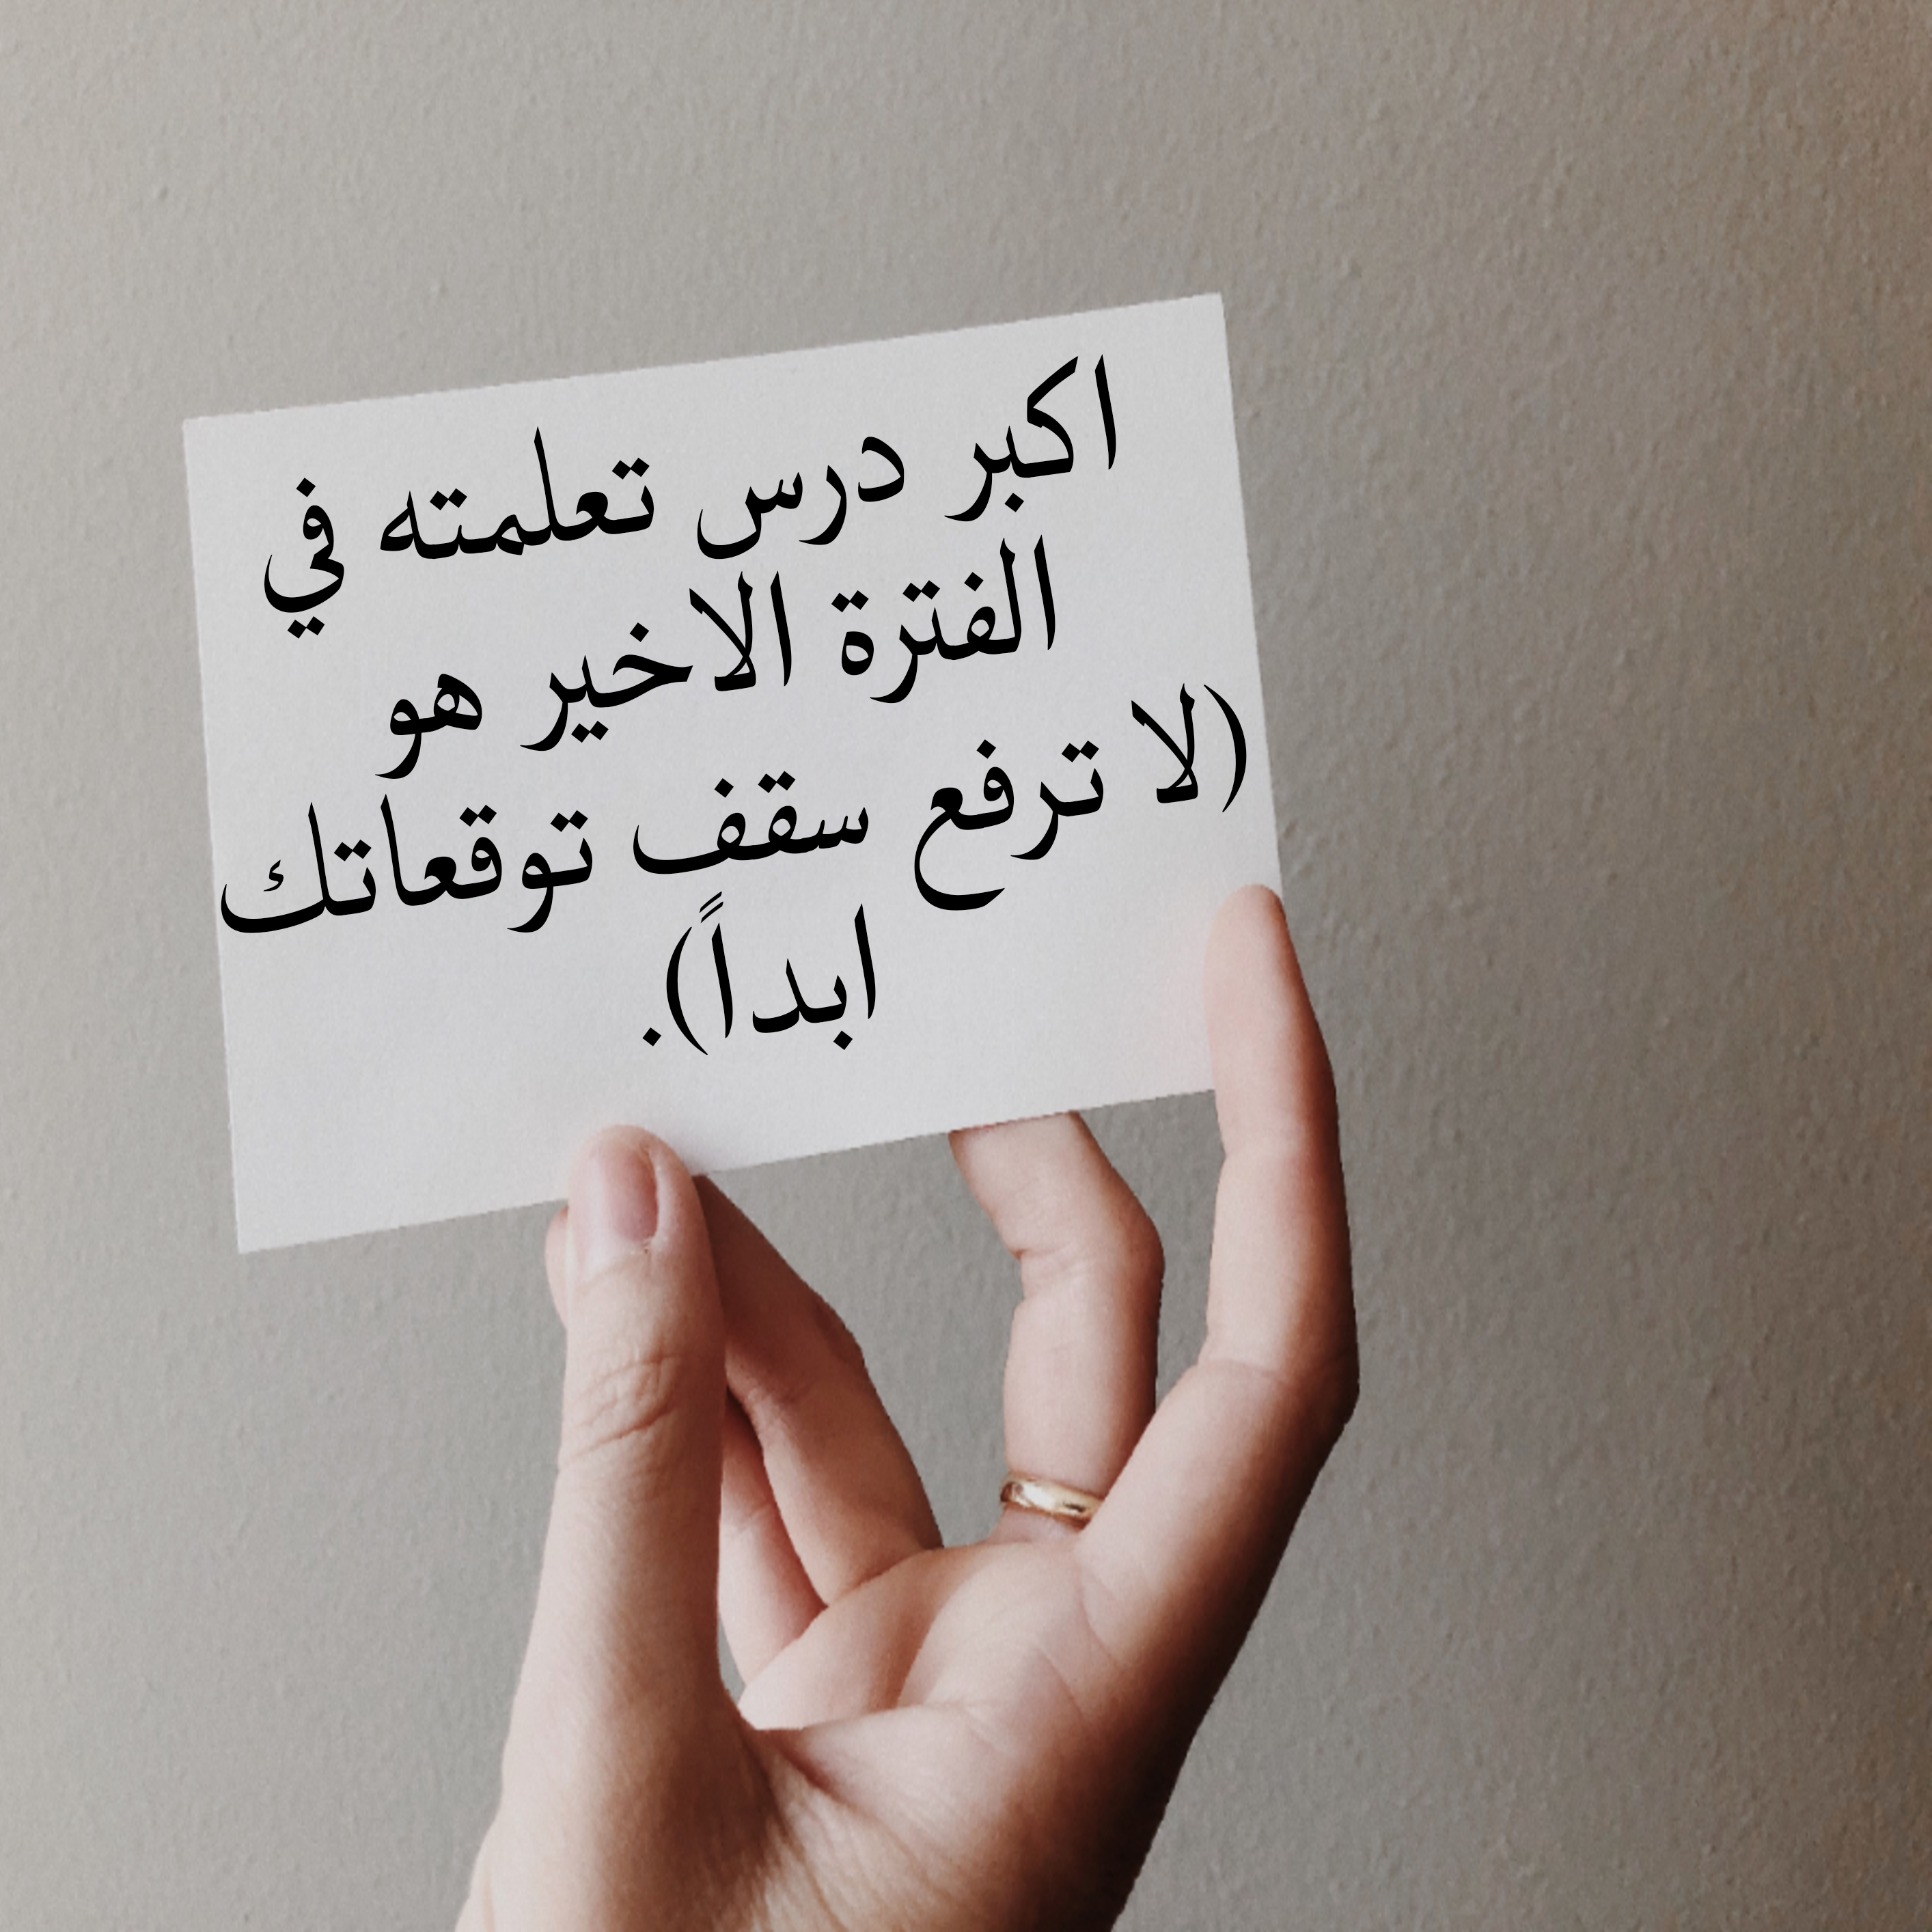 اكبر درس تعلمته في
الفترة الاخير هو
(لا ترفع سقف توقعاتك
ابداً).